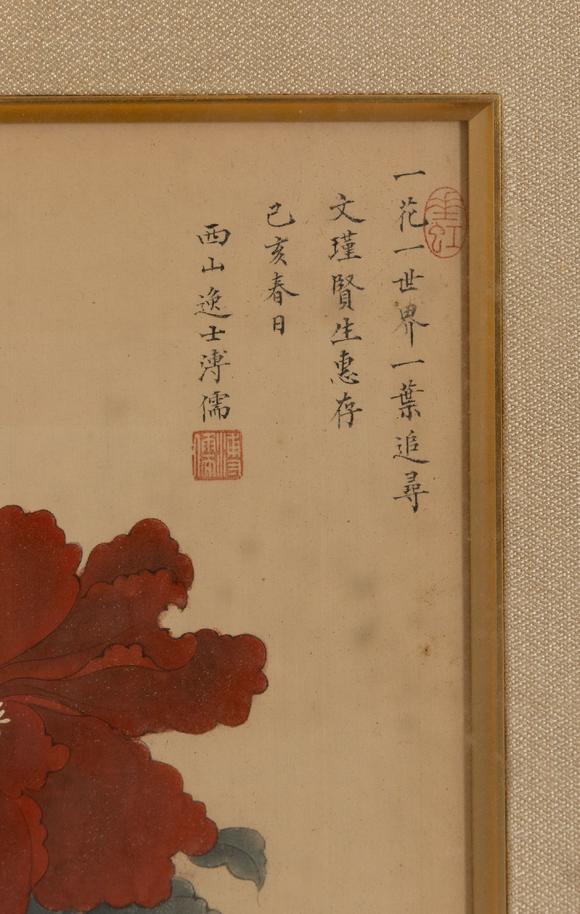 一花一世界一葉一追尋
文瑾賢生惠存
己亥春日
西山逸士溥儒